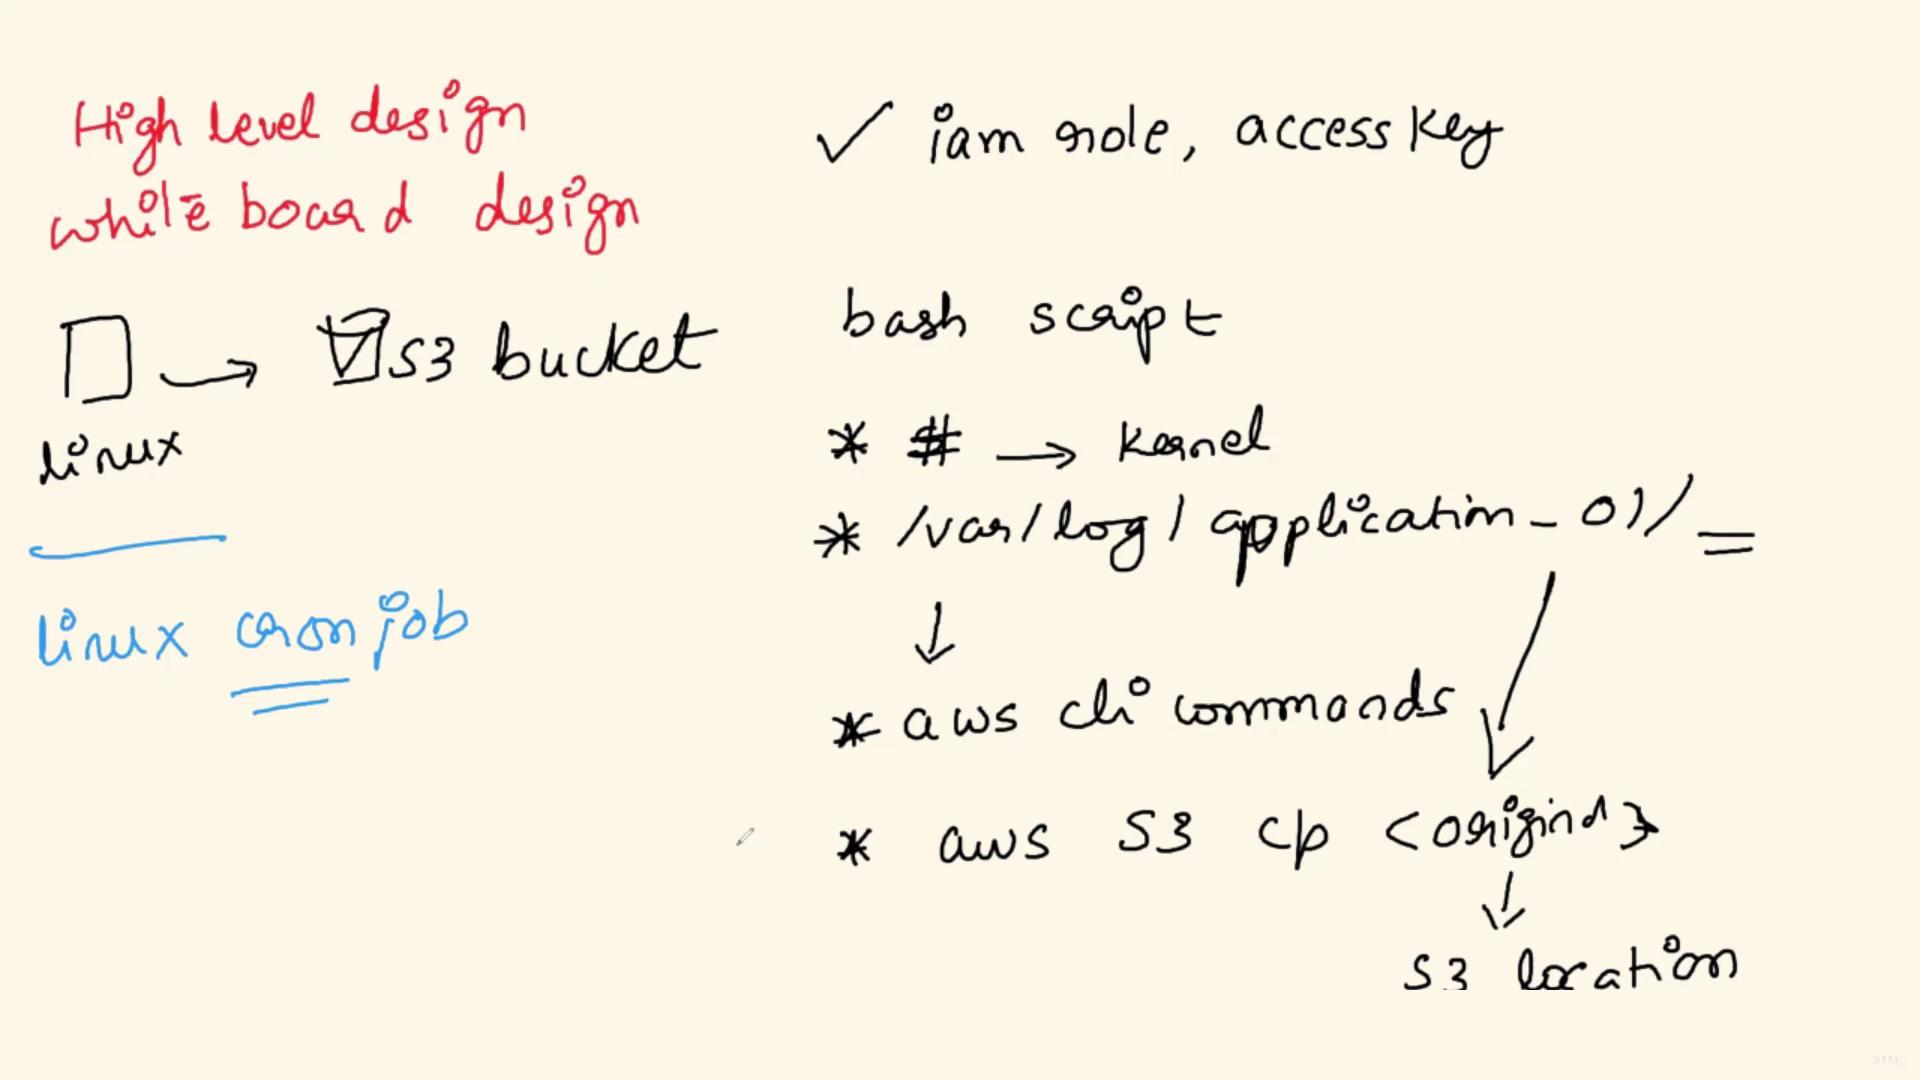 High level design
white board design
S3 bucket
linux
linux cron job
iam role, access key
bash script
* # → Kernel
* /var/log/application_01/
* aws cli commands
* aws S3 cp <original>
S3 location